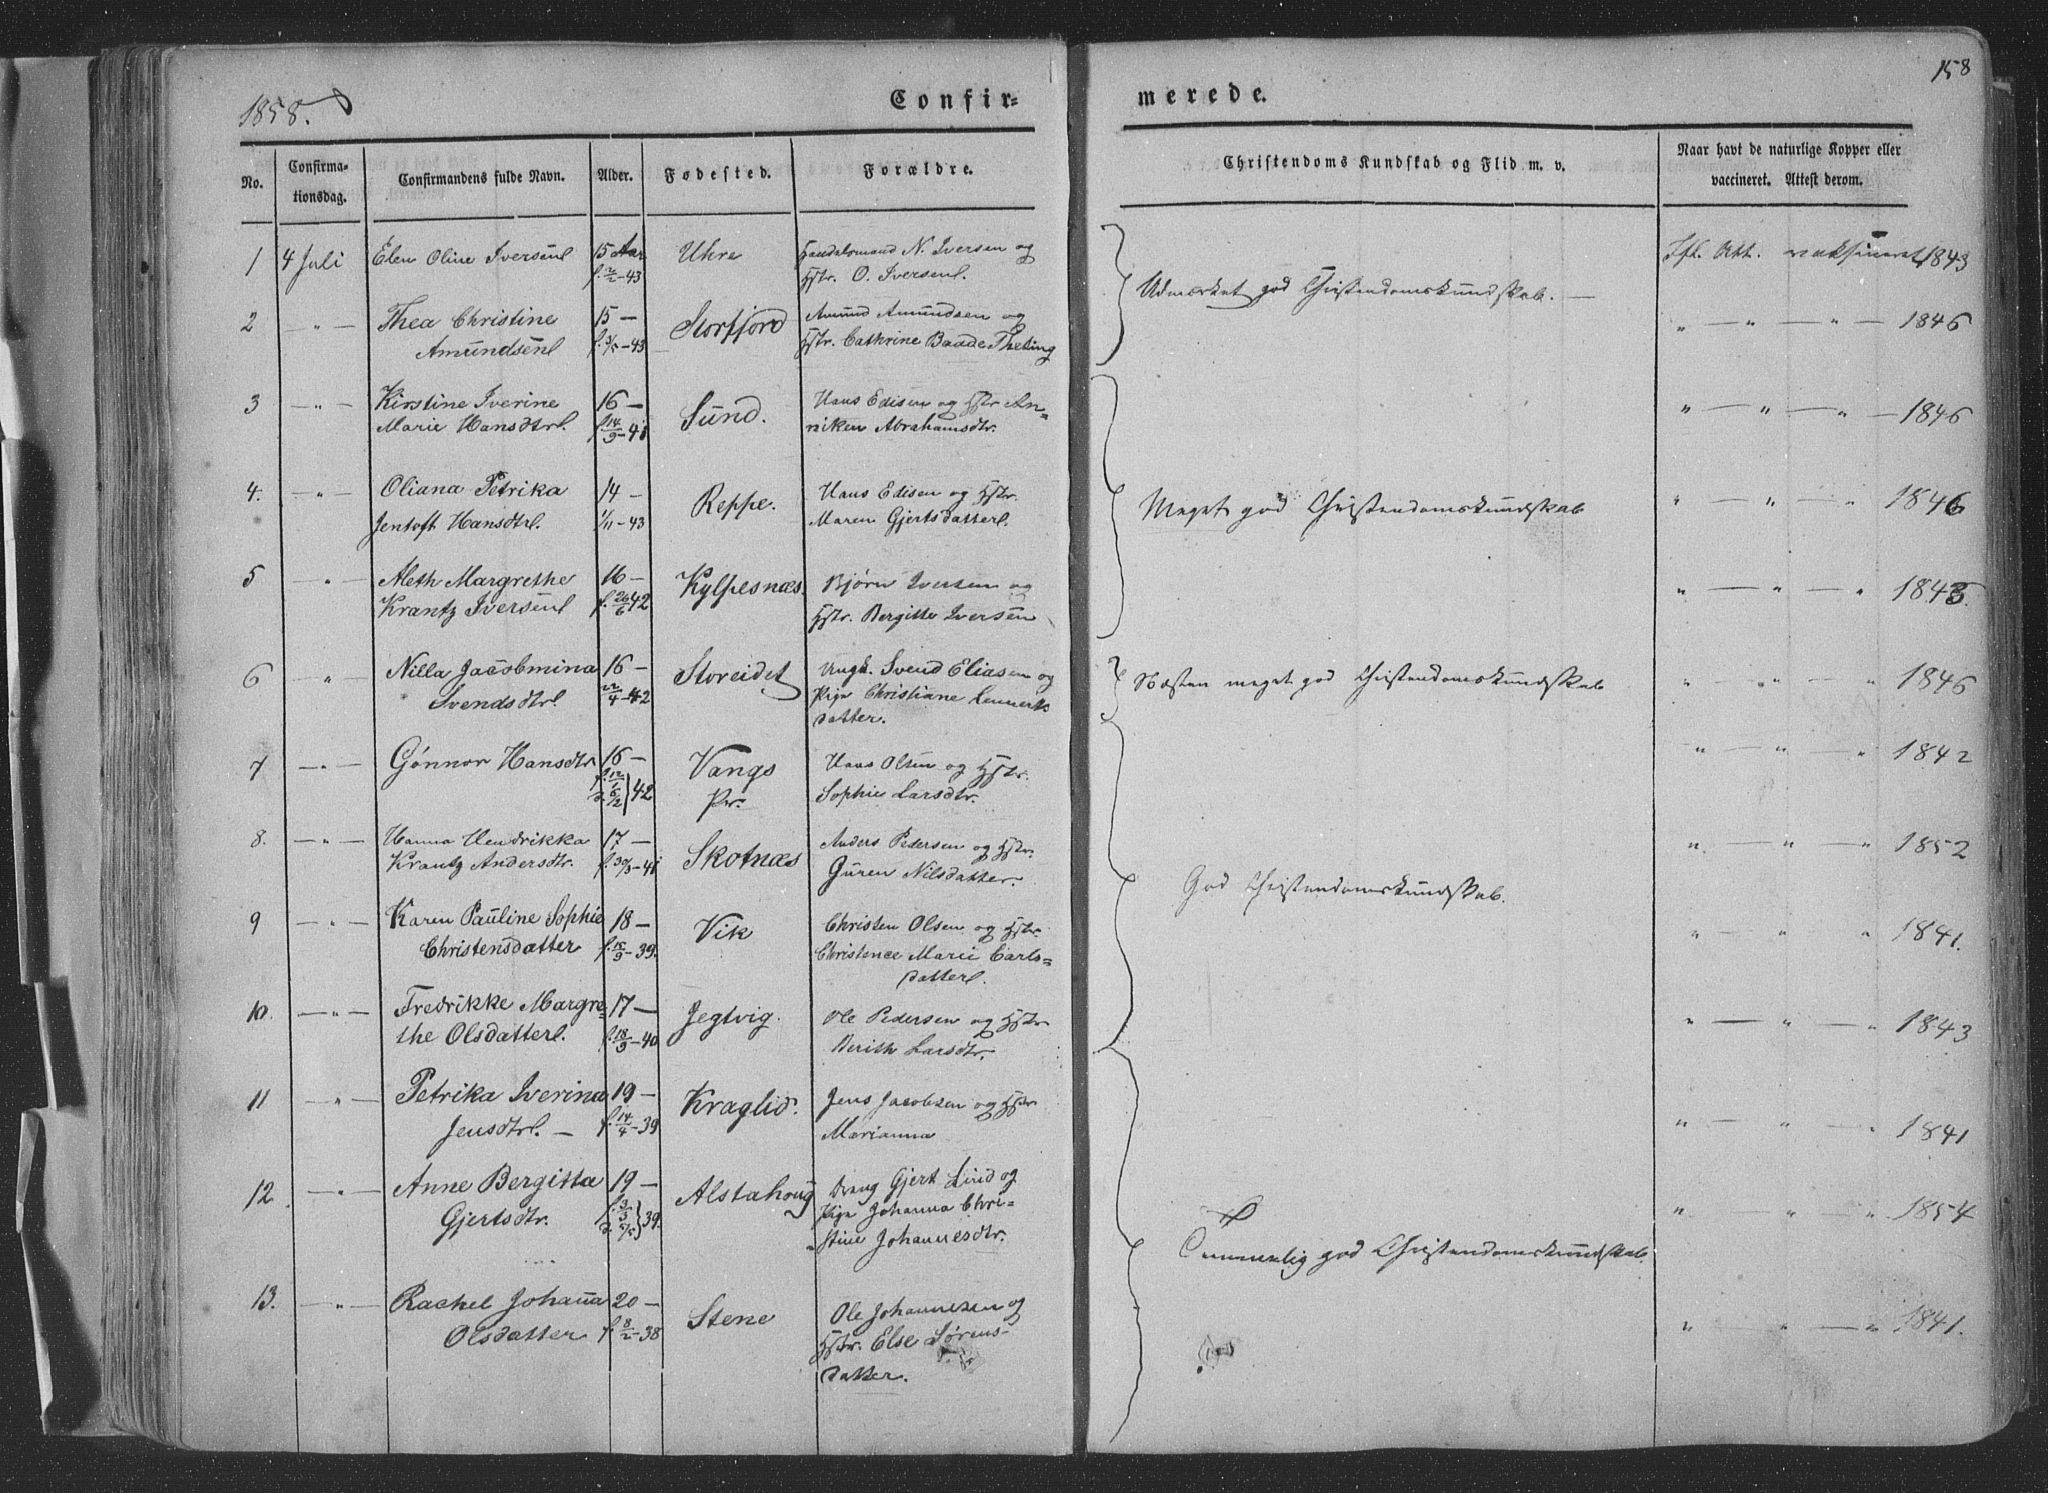 158
1858.
Confir=
merede.
No.
Confirma-
tionsdag.
Confirmandens fulde Navn.
Alder.
Fødested.
Forældre.
Christendoms Kundskab og Flid m. v.
Naar havt de naturlige Kopper eller
vaccineret. Attest derom.
1 4 Juli Elen Oline Iversenl 15 Aar Uhre Handelsmand N. Iversen og
f. 2/2-43 Hstr. O. Iversenl.
Ifl. Att. vaksineret 1843
Udmærket god Christendomskundskab. —
2 — " — Thea Christine 15 — Storfjord Amund Amundsen og
Amundsenl f. 3/5-43 Hstr. Cathrine Baade Theting
" — " — " — 1846
3 — " — Kirstine Iverine 16 — Sund. Hans Edisen og Hstr An=
Marie Hansdtrl. f. 14/9-41 niken Abrahamsdtr.
" — " — " — 1846
4. — " — Oliana Petrika 14 — Reppe. Hans Edisen og Hstr.
Jentoft Hansdtrl. 1/11-43 Maren Gjertsdatterl.
Meget god Christendomskundskab
" — " — " 1846
5 — " — Aleth Margrethe 16 — Kylpesnæs. Bjørn Iversen og
Krantz Iversenl f. 26/6 42 Hstr. Bergitte Iversen
" — " — "
6 — " — Nilla Jacobmina 16 — Storeidet Ungk. Svend Eliasen og
Svendsdtrl 22/4-42 Pige Christiane Lennerts
datter.
Næsten meget god Christendomskundskab
" — " — " 1846
7 — " — Gønnor Hansdtr 16 — Vangs Hans Olsen og Hstr.
f. 12/1 d. 6/2 } 42 Pr. Sophie Larsdtr.
" — " — " 1842
8. — " — Hanna Hendrikka 17 — Skotnæs Anders Pedersen og Hstr.
Krantz Andersdtr. f. 30/3-41 Guren Nilsdatter.
" — " — " 1852
God Christendomskundskab.
9 — " — Karen Pauline Sophie 18 — Vik Christen Olsen og Hstr.
Christensdatter f. 15/9-39. Christence Marie Carls=
datterl.
" — " — " 1841.
10. — " — Fredrikke Margre= 17 — Jegtvig. Ole Pedersen og Hstr
the Olsdatterl. f. 18/9-40 Berith Larsdtr.
" — " — " 1843
11 — " — Petrika Iverina 19 — Kraglid. Jens Jacobsen og Hstr
Jensdtrl. — f. 14/4-39 Marianna
" — " — " 1841
12. — " — Anne Bergitta 19 — Alstahoug Dreng Gjert Lind og
Gjertsdtr. f. 3/3 d. 5/5 } 39. Pige Johanna Chri=
stine Johannesdtr.
" — " — " 1854
Temmelig god Christendomskundskab.
13. — " — Rachel Johana 20 — Stene Ole Johannesen og
Olsdatter f. 8/2-38 Hstr. Else Sørens-
datter.
" — " — " 1841.